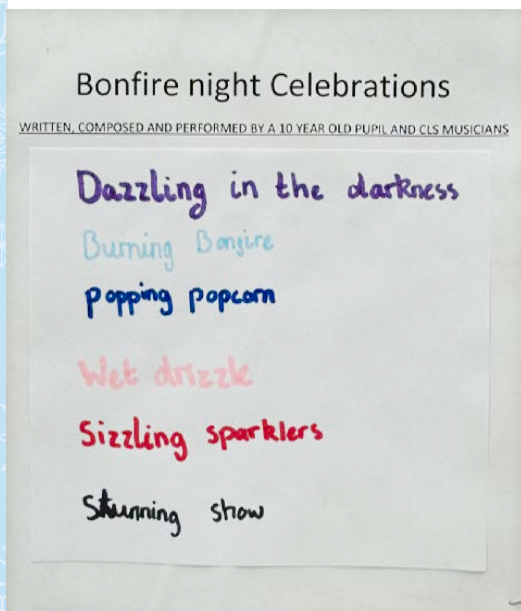 Bonfire night Celebrations
WRITTEN, COMPOSED AND PERFORMED BY A 10 YEAR OLD PUPIL AND CLS MUSICIANS
Dazzling in the darkness
Burning Bonfire
popping popcorn
Wet drizzle
Sizzling sparklers
Stunning show